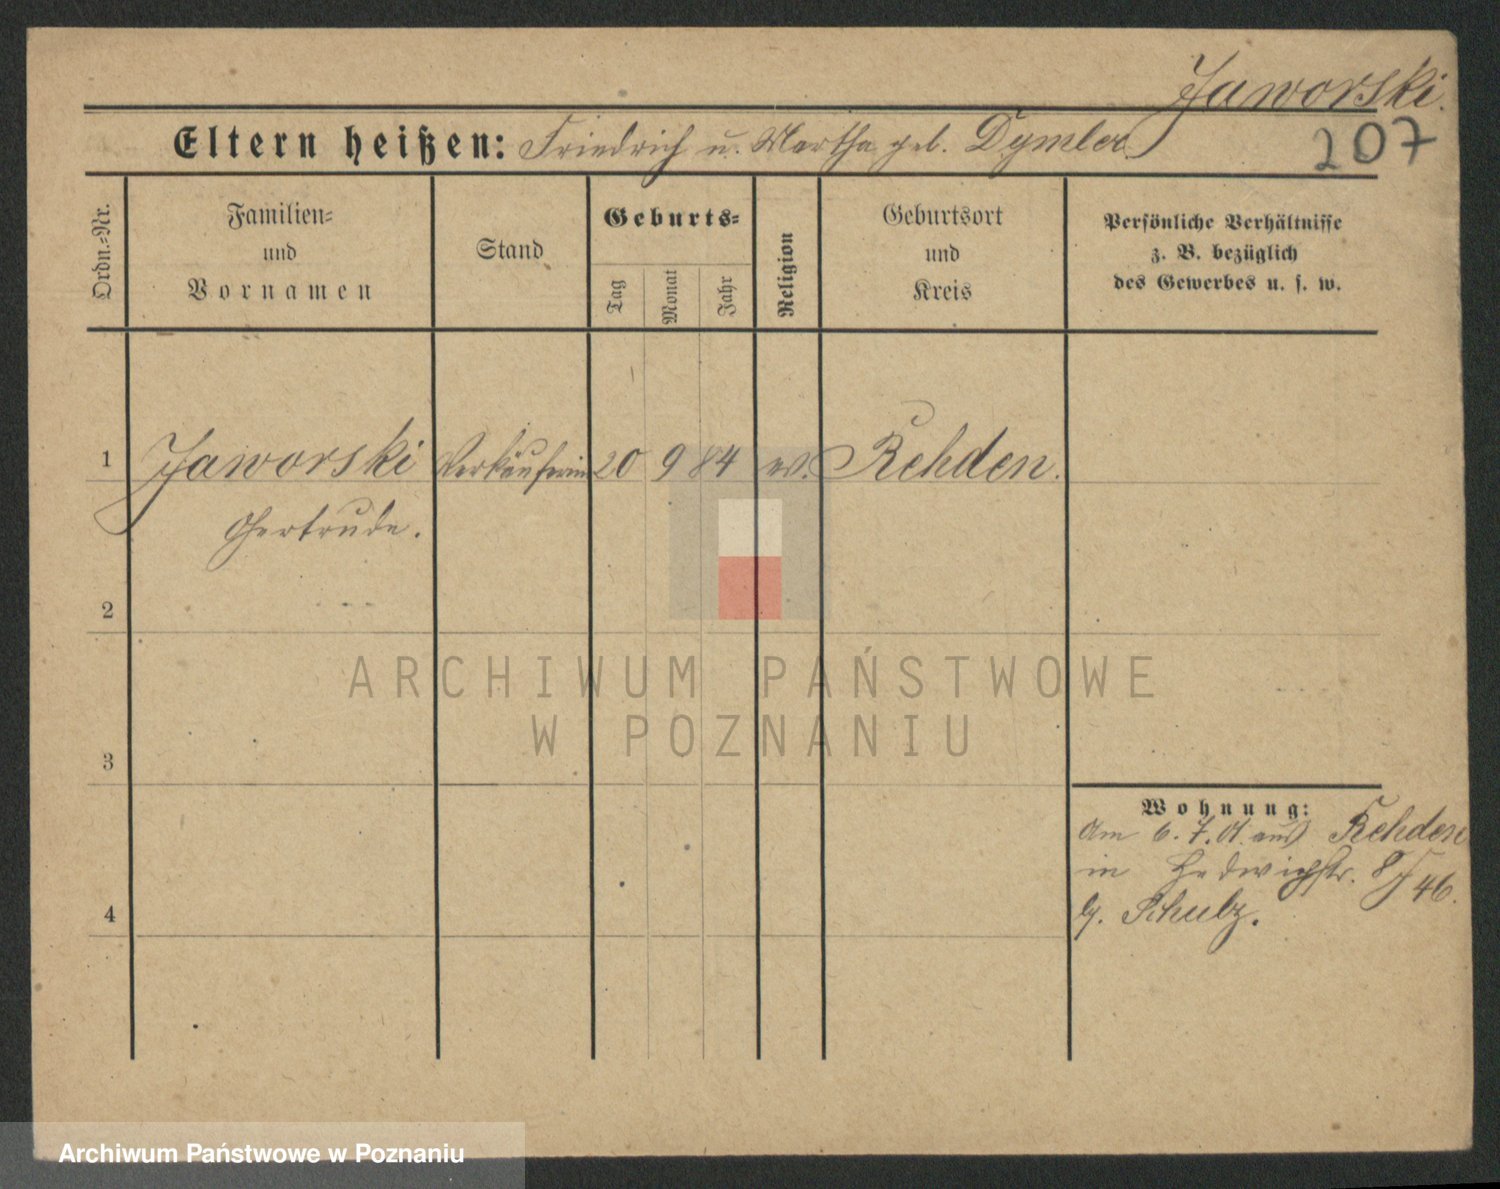 Jaworski.
207
Eltern heißen: Friedrich u. Martha geb. Dymler
Ordn.-Nr.
Familien-
und
Vornamen
Stand
Geburts-
Tag
Monat
Jahr
Religion
Geburtsort
und
Kreis
Persönliche Verhältnisse
z. B. bezüglich
des Gewerbes u. s. w.
1 Jaworski Verkäuferin 20 9 84 ev. Rehden.
Gertrude.
2
3
4
Wohnung:
Am 6. 7. 01. aus Rehden
in Hedwigstr. 46.
b. Schulz.
ARCHIWUM PAŃSTWOWE
W POZNANIU
Archiwum Państwowe w Poznaniu